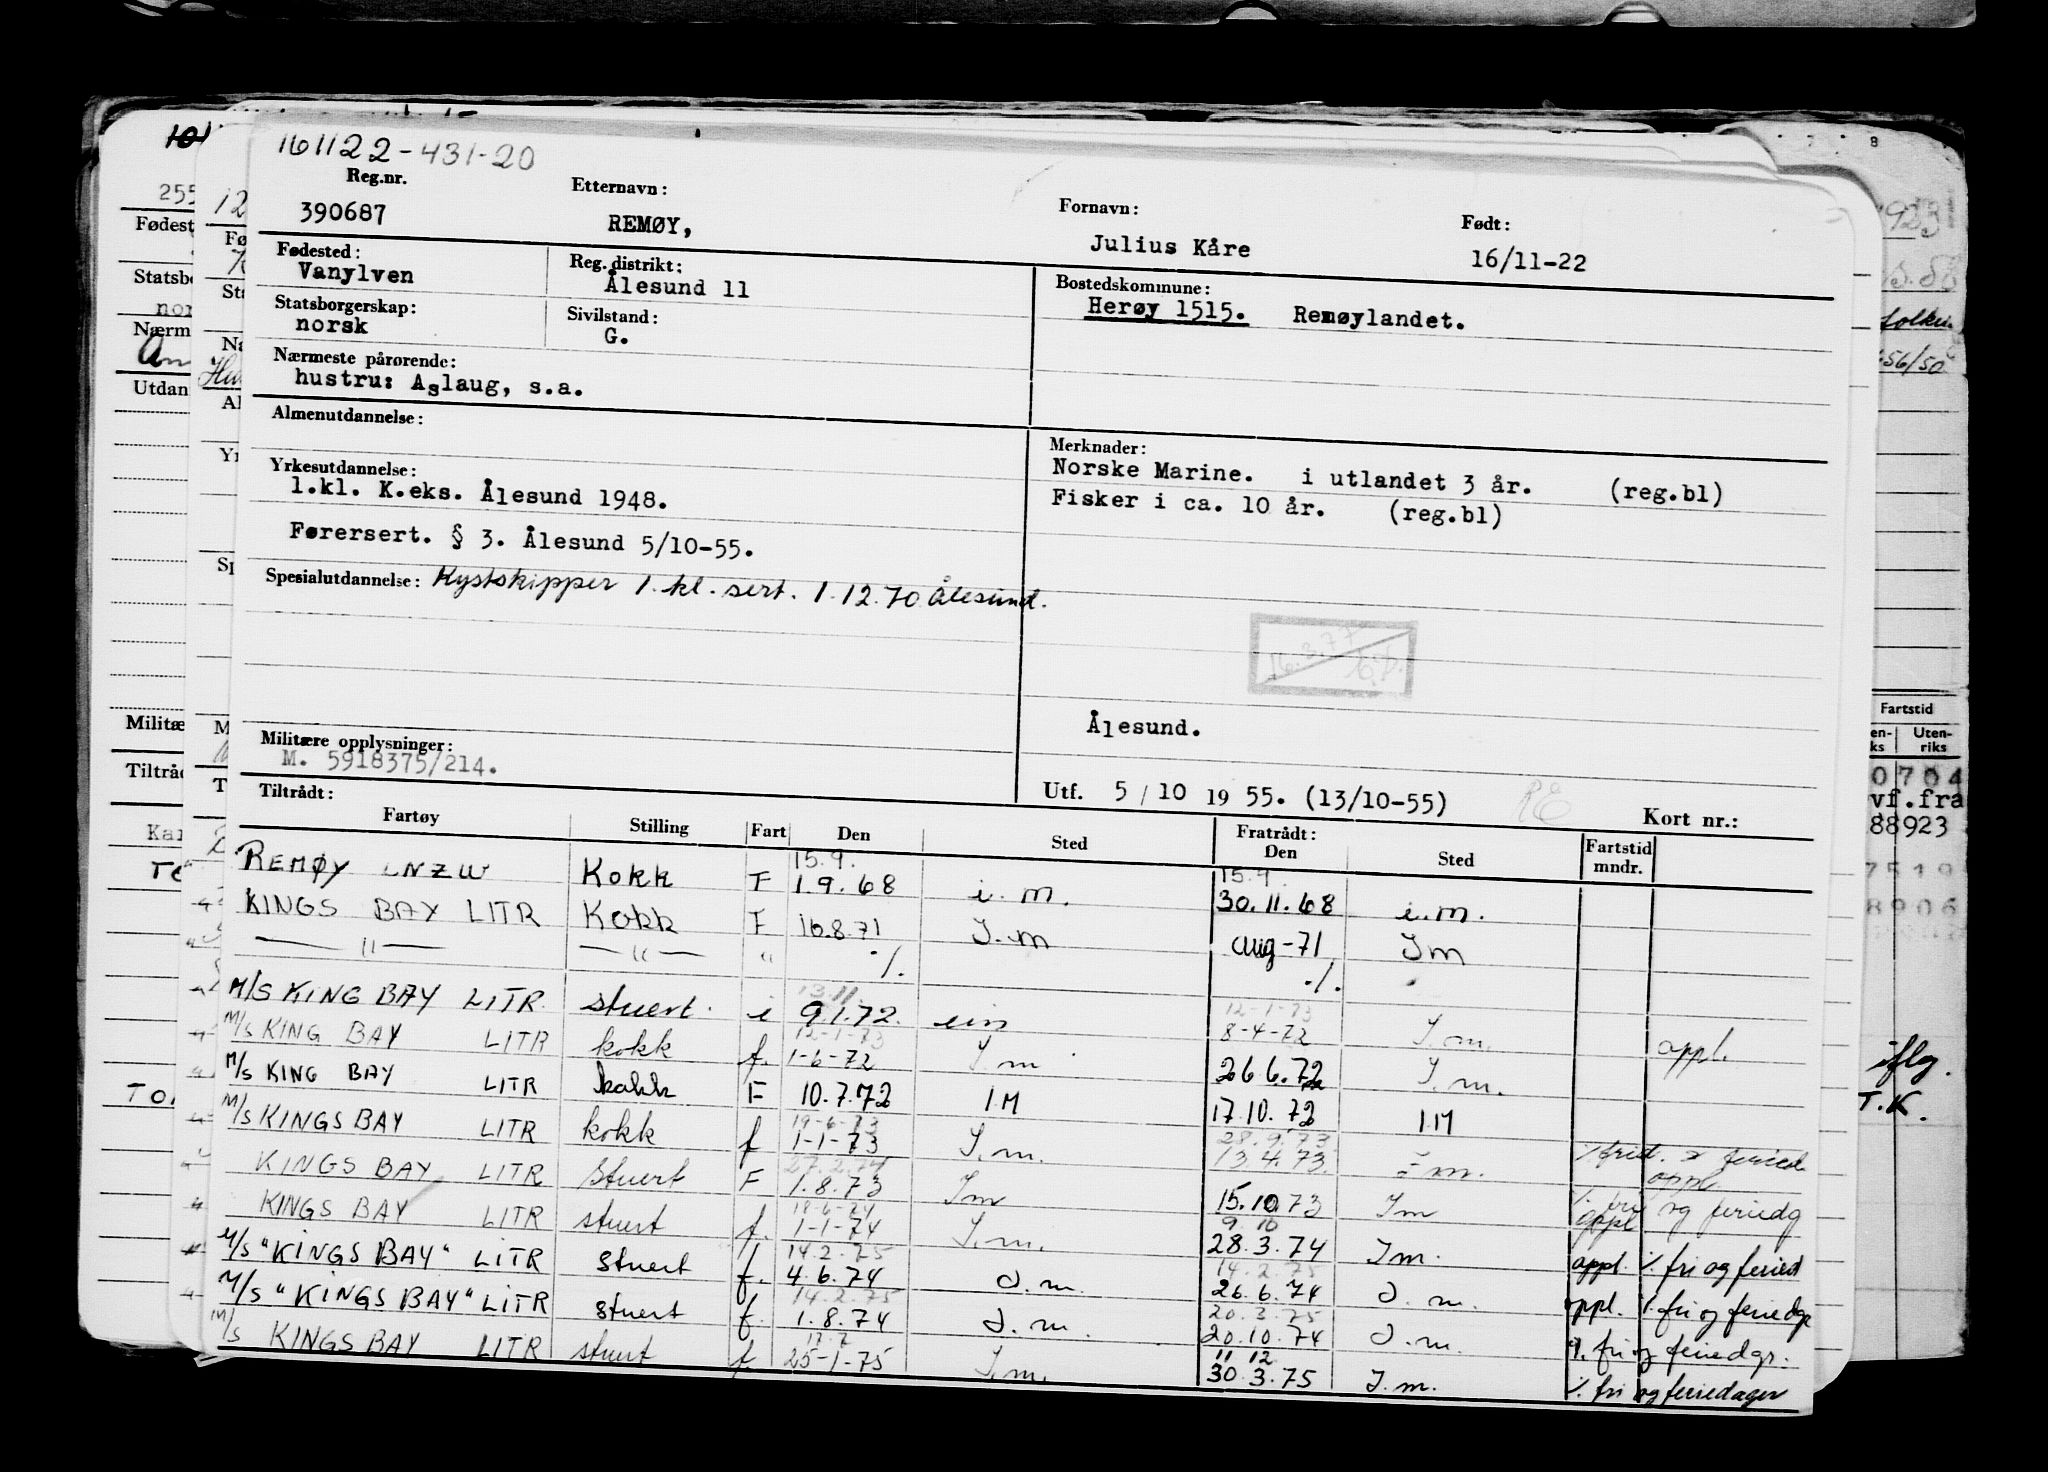 161122-431-20
Reg.nr. Etternavn: Fornavn: Født:
390687 REMØY, Julius Kåre 16/11-22
Fødested: Reg. distrikt: Bostedskommune:
Vanylven Ålesund 11 Herøy 1515. Remøylandet.
Statsborgerskap: Sivilstand:
norsk G.
Nærmeste pårørende:
hustru: Aslaug, s.a.
Almenutdannelse: Merknader:
Norske Marine. i utlandet 3 år. (reg.bl)
Yrkesutdannelse: Fisker i ca. 10 år. (reg.bl)
1.kl. K.eks. Ålesund 1948.
Førersert. § 3. Ålesund 5/10-55.
Spesialutdannelse: Kystskipper 1. kl. sert. 1.12.70 Ålesund.
16.3.77
Ålesund.
Militære opplysninger:
M. 5918375/214.
Utf. 5/10 1955. (13/10-55) Kort nr.:
Tiltrådt: Fratrådt:
Fartøy Stilling Fart Den Sted Den Sted Fartstid mndr.
15.9. 15.9.
REMØY LNZW Kokk F 1.9.68 i.m. 30.11.68 i.m.
KINGS BAY LITR Kokk F 16.8.71 I.m aug-71 Im
— " — — " — " ./. ./.
13.11. 12-1-73
M/S KING BAY LITR. stuert. i 9.1.72. 8-4-72 I.m. oppl.
12-1-73
M/S KING BAY LITR kokk f. 1-6-72 I.m 26.6.72 I.m.
M/S KING BAY LITR kokk F 10.7.72 I M 17.10.72 I.M
19-6-73 28.9.73
M/S KINGS BAY LITR kokk f 1-1-73 I.m. 13.4.73. m. oppl
27.2.74
KINGS BAY LITR Stuert F 1.8.73 Im 15.10.73 Im ./. fri og feriedg
18-6-74 9. 10 oppl
KINGS BAY LITR stuert f. 1-1-74 I.m. 28.3.74 Im. oppl. ./. fri og feried
14.2.75 14.2.75
M/S "KINGS BAY" LITR stuert f. 4.6.74 I.m. 26.6.74 I.m. oppl. ./. fri og feriedgr
14.2.75 20.3.75
M/S "KINGS BAY" LITR stuert f. 1.8.74 I.m. 20.10.74 I.m. ./. fri og feriedgr.
17.7 11 12
M/S KINGS BAY LITR stuert f 25-1-75 I.m. 30.3.75 I.m. ./. fri og feriedager